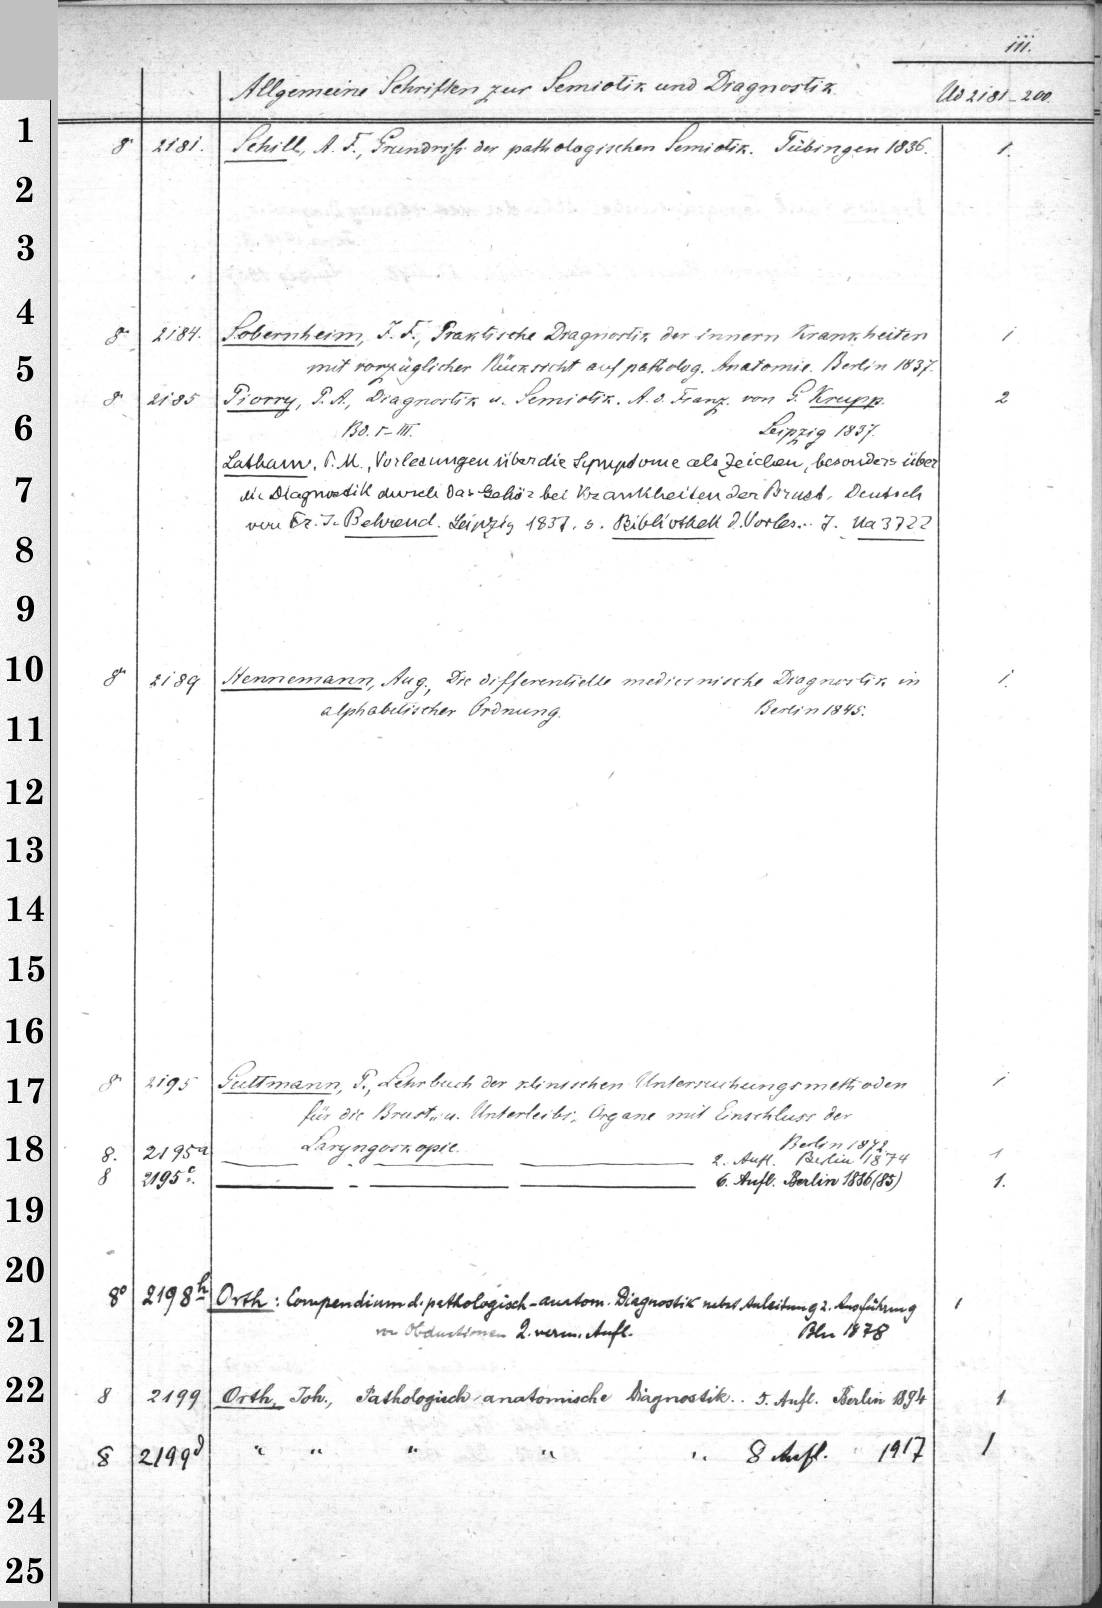 iii.
Allgemeine Schriften zur Semiotik und Diagnostik Ud 2181-200
1
8° 2181. Schill, A. F., Grundriss der pathologischen Semiotik. Tübingen 1836. 1.
2
3
4
8° 2184. Sobernheim, J. F., Praktische Diagnostik der innern Krankheiten 1
5
mit vorzüglicher Rücksicht auf patholog. Anatomie. Berlin 1837.
8° 2185 Piorry, P. A., Diagnostik u. Semiotik. A. d. Franz. von G. Krupp. 2
6
Bd. I-III. Leipzig 1837.
Latham, P. M., Vorlesungen über die Symptome als Zeichen, besonders über
7
die Diagnostik durch das Gehör bei Krankheiten der Brust. Deutsch
von Fr. J. Behrend. Leipzig 1837. s. Bibliothek d. Vorles... 7. Ua 3722
8
9
10
8° 2189 Hennemann, Aug., Die differentielle medicinische Diagnostik in 1.
alphabetischer Ordnung. Berlin 1845.
11
12
13
14
15
16
17
8° 2195 Guttmann, P., Lehrbuch der klinischen Untersuchungsmethoden 1
für die Brust- u. Unterleibs-Organe mit Einschluss der
18
Laryngoskopie. Berlin 1872
8. 2195a — - — — 2. Aufl. Berlin 1874 1
8 2195c. — - — — 6. Aufl. Berlin 1886(85) 1.
19
20
8° 2198h Orth: Compendium d. pathologisch-anatom. Diagnostik nebst Anleitung z. Ausführung 1
21
von Obductionen 2. verm. Aufl. Bln 1878
22
8 2199 Orth, Joh., Pathologisch-anatomische Diagnostik.. 5. Aufl. Berlin 1894 1
23
8 2199d " " " " " 8 Aufl. " 1917 1
24
25